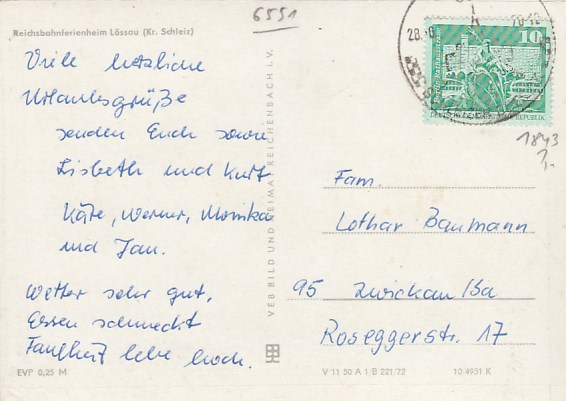 6551
Reichsbahnferienheim Lössau (Kr. Schleiz)
Viele herzliche
Urlaubsgrüße
senden Euch sowie
Lisbeth und Kurt
Käte, Werner, Monika
und Jan.
Wetter sehr gut,
Essen schmeckt
Faulheit lebe hoch.
EVP 0,25 M
VEB BILD UND HEIMAT REICHENBACH I. V.
28.
10
1843
1,-
Fam.
Lothar Baumann
95 Zwickau/Sa
Roseggerstr. 17
V 11 50 A 1/B 221/72
10 4951 K